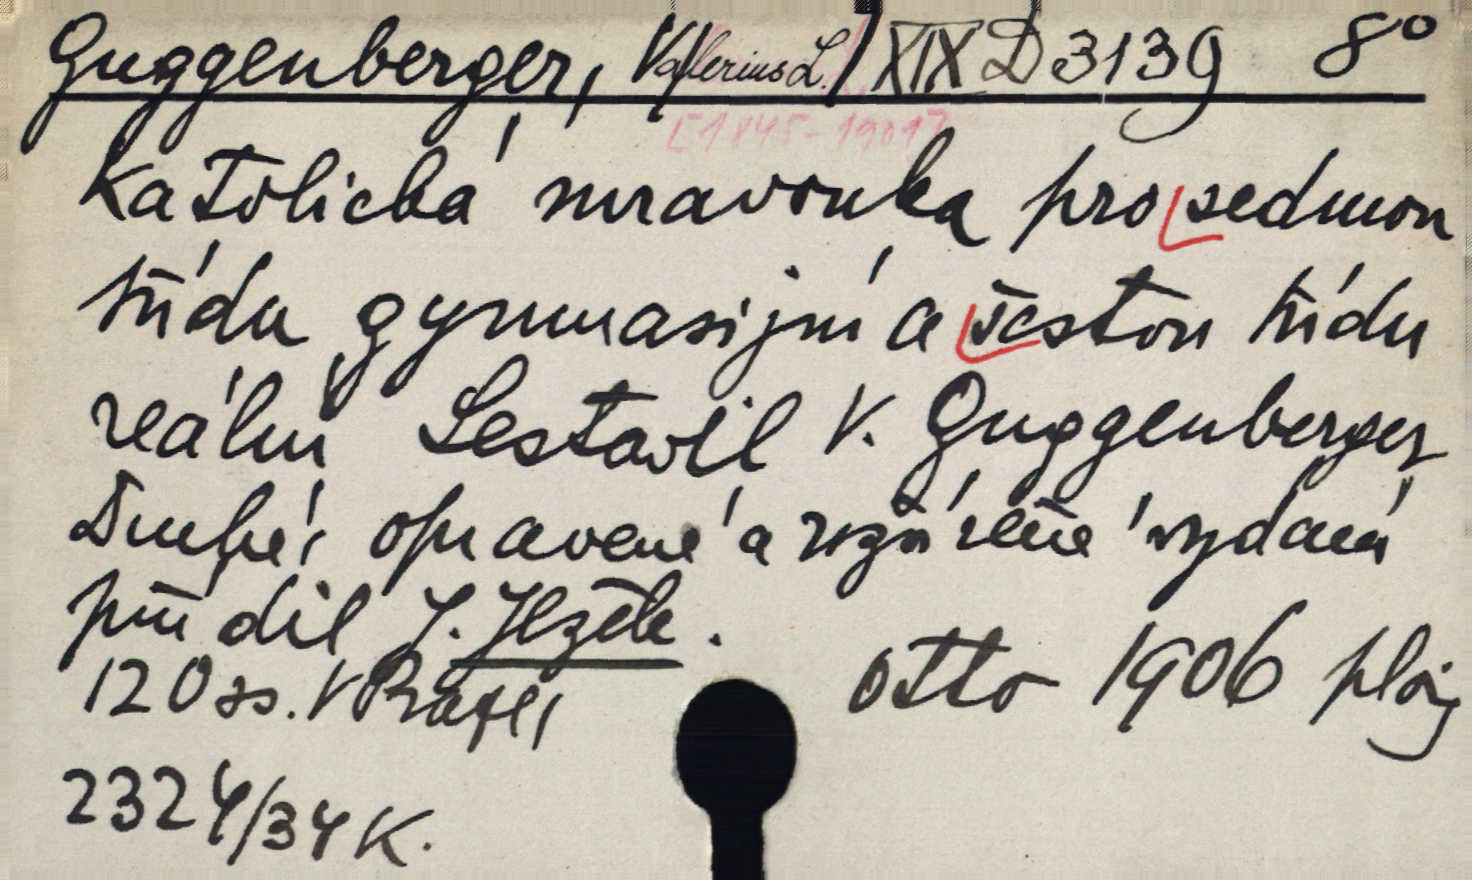 Guggenberger, Valerius L. XIX D 3139 8°
[1845-1909?
Katolická mravouka pro sedmou
třídu gymnasijní a šestou třídu
reální Sestavil V. Guggenberger
Druhé, opravené a rozšířené vydání
pořídil J. Ježek.
120 ss. V Praze, Otto 1906
2324/34 K.